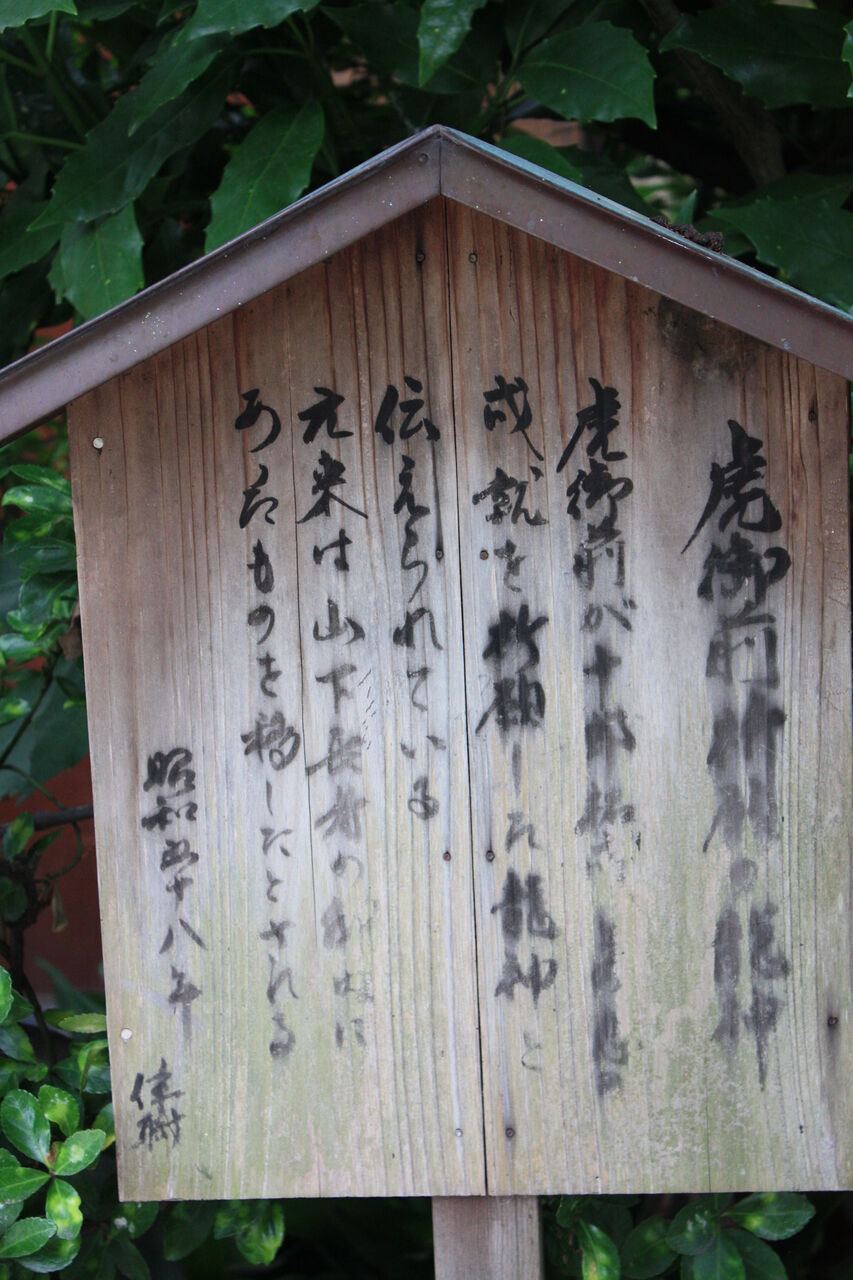 虎御前祈祷の龍神
虎御前が十郎祐
成就を祈祷した龍神と
伝えられている
元来は山下長者の
あったものを移したとされる
昭和五十八年
佳樹